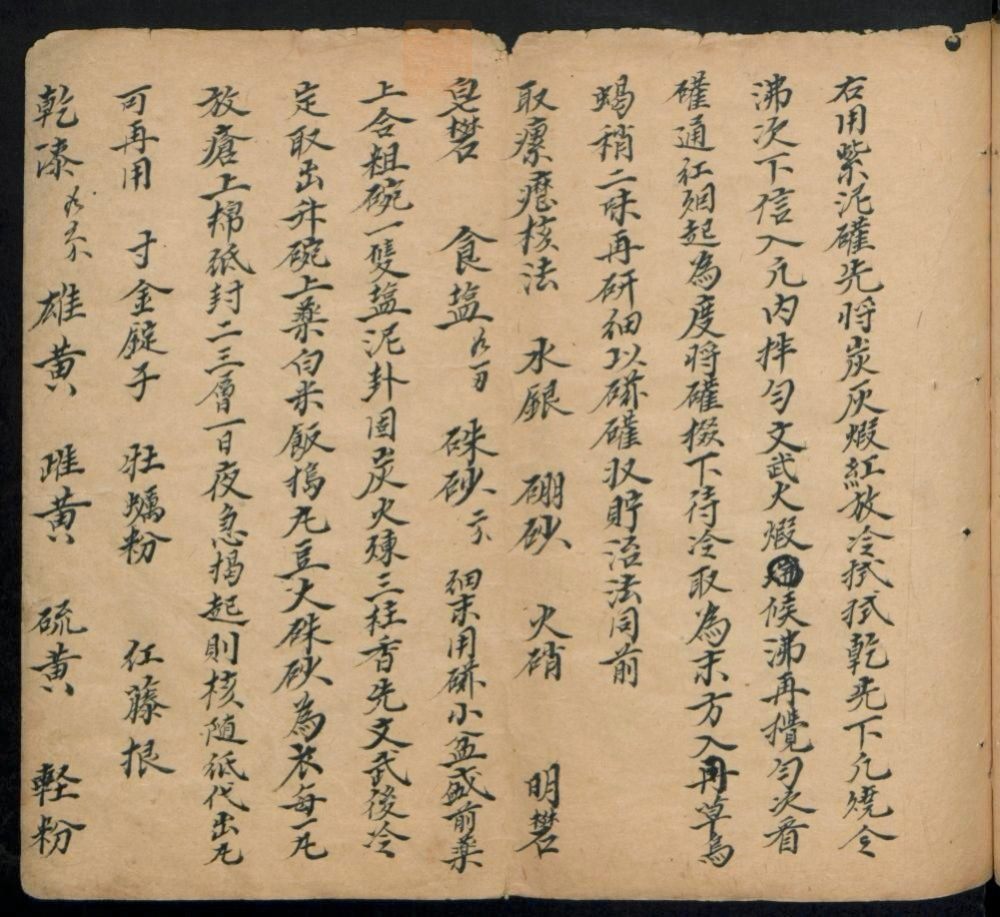 右用紫泥礶先将炭灰煆紅放冷拭拭乾先下亢燒令
沸次下信入亢内拌匀文武火煆候沸再攪匀次看
礶通红烟起為度将礶掇下待冷取為末方入再草烏
蝎稍二味再研细以磁礶収貯治法同前
取瘰癧核法 水銀 硼砂 火硝 明礬
皂礬 食盐 硃砂 细末用磁小盆盛前薬
上合粗碗一隻盐泥卦固炭火煉三柱香先文武後冷
定取出升碗上薬白米飯搗丸豆大硃砂為衣每一丸
放瘡上棉紙封二三層一日夜急揭起則核随紙代出丸
可再用 寸金錠子 牡蠣粉 红藤根
乾漆 雄黄 雌黄 硫黄 軽粉